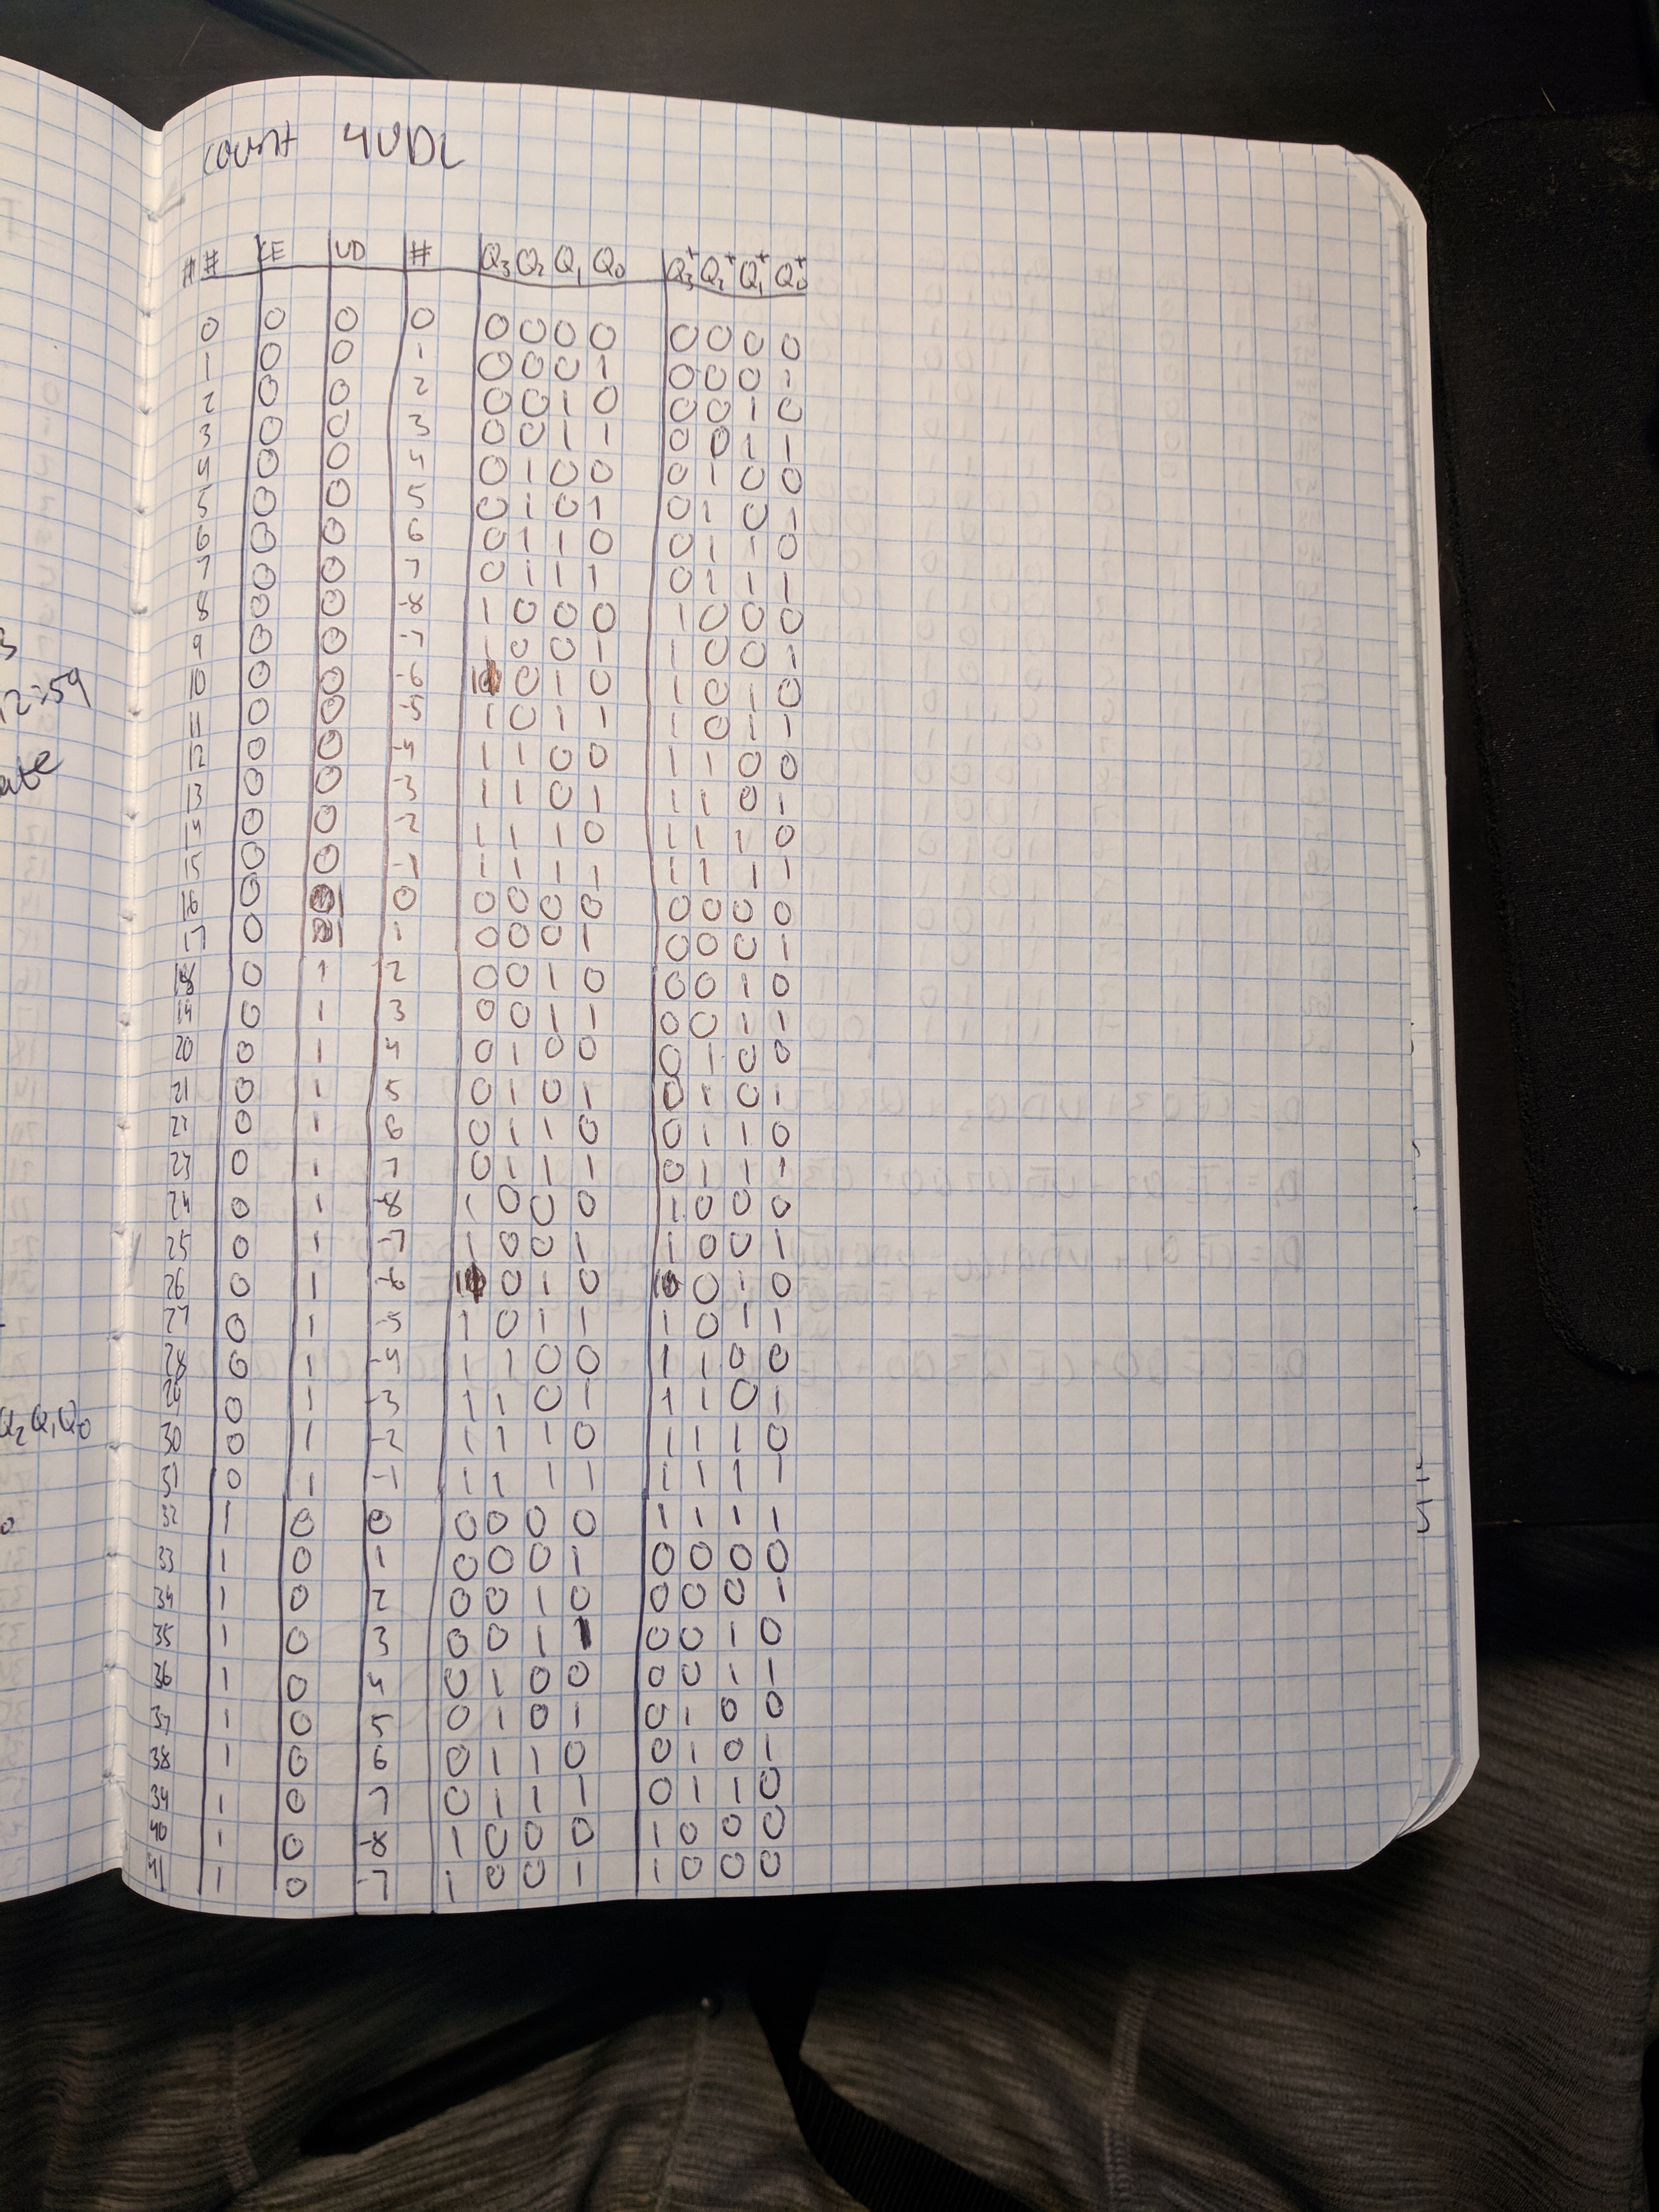 count 4UDL
## CE UD # Q3 Q2 Q1 Q0 Q3+ Q2+ Q1+ Q0+
0 0 0 0 0 0 0 0 0 0 0 0
1 0 0 1 0 0 0 1 0 0 0 1
2 0 0 2 0 0 1 0 0 0 1 0
3 0 0 3 0 0 1 1 0 0 1 1
4 0 0 4 0 1 0 0 0 1 0 0
5 0 0 5 0 1 0 1 0 1 0 1
6 0 0 6 0 1 1 0 0 1 1 0
7 0 0 7 0 1 1 1 0 1 1 1
8 0 0 -8 1 0 0 0 1 0 0 0
9 0 0 -7 1 0 0 1 1 0 0 1
10 0 0 -6 1 0 1 0 1 0 1 0
11 0 0 -5 1 0 1 1 1 0 1 1
12 0 0 -4 1 1 0 0 1 1 0 0
13 0 0 -3 1 1 0 1 1 1 0 1
14 0 0 -2 1 1 1 0 1 1 1 0
15 0 0 -1 1 1 1 1 1 1 1 1
16 0 0 0 0 0 0 0 0 0 0
17 0 1 0 0 0 1 0 0 0 1
18 0 1 2 0 0 1 0 0 0 1 0
19 0 1 3 0 0 1 1 0 0 1 1
20 0 1 4 0 1 0 0 0 1 0 0
21 0 1 5 0 1 0 1 0 1 0 1
22 0 1 6 0 1 1 0 0 1 1 0
23 0 1 7 0 1 1 1 0 1 1 1
24 0 1 -8 1 0 0 0 1 0 0 0
25 0 1 -7 1 0 0 1 1 0 0 1
26 0 1 -6 1 0 1 0 1 0 1 0
27 0 1 -5 1 0 1 1 1 0 1 1
28 0 1 -4 1 1 0 0 1 1 0 0
29 0 1 -3 1 1 0 1 1 1 0 1
30 0 1 -2 1 1 1 0 1 1 1 0
31 0 1 -1 1 1 1 1 1 1 1 1
32 1 0 0 0 0 0 0 1 1 1 1
33 1 0 1 0 0 0 1 0 0 0 0
34 1 0 2 0 0 1 0 0 0 0 1
35 1 0 3 0 0 1 1 0 0 1 0
36 1 0 4 0 1 0 0 0 0 1 1
37 1 0 5 0 1 0 1 0 1 0 0
38 1 0 6 0 1 1 0 0 1 0 1
39 1 0 7 0 1 1 1 0 1 1 0
40 1 0 -8 1 0 0 0 1 0 0 0
41 1 0 -7 1 0 0 1 1 0 0 0
3
12:59
ate
Q2Q1Q0